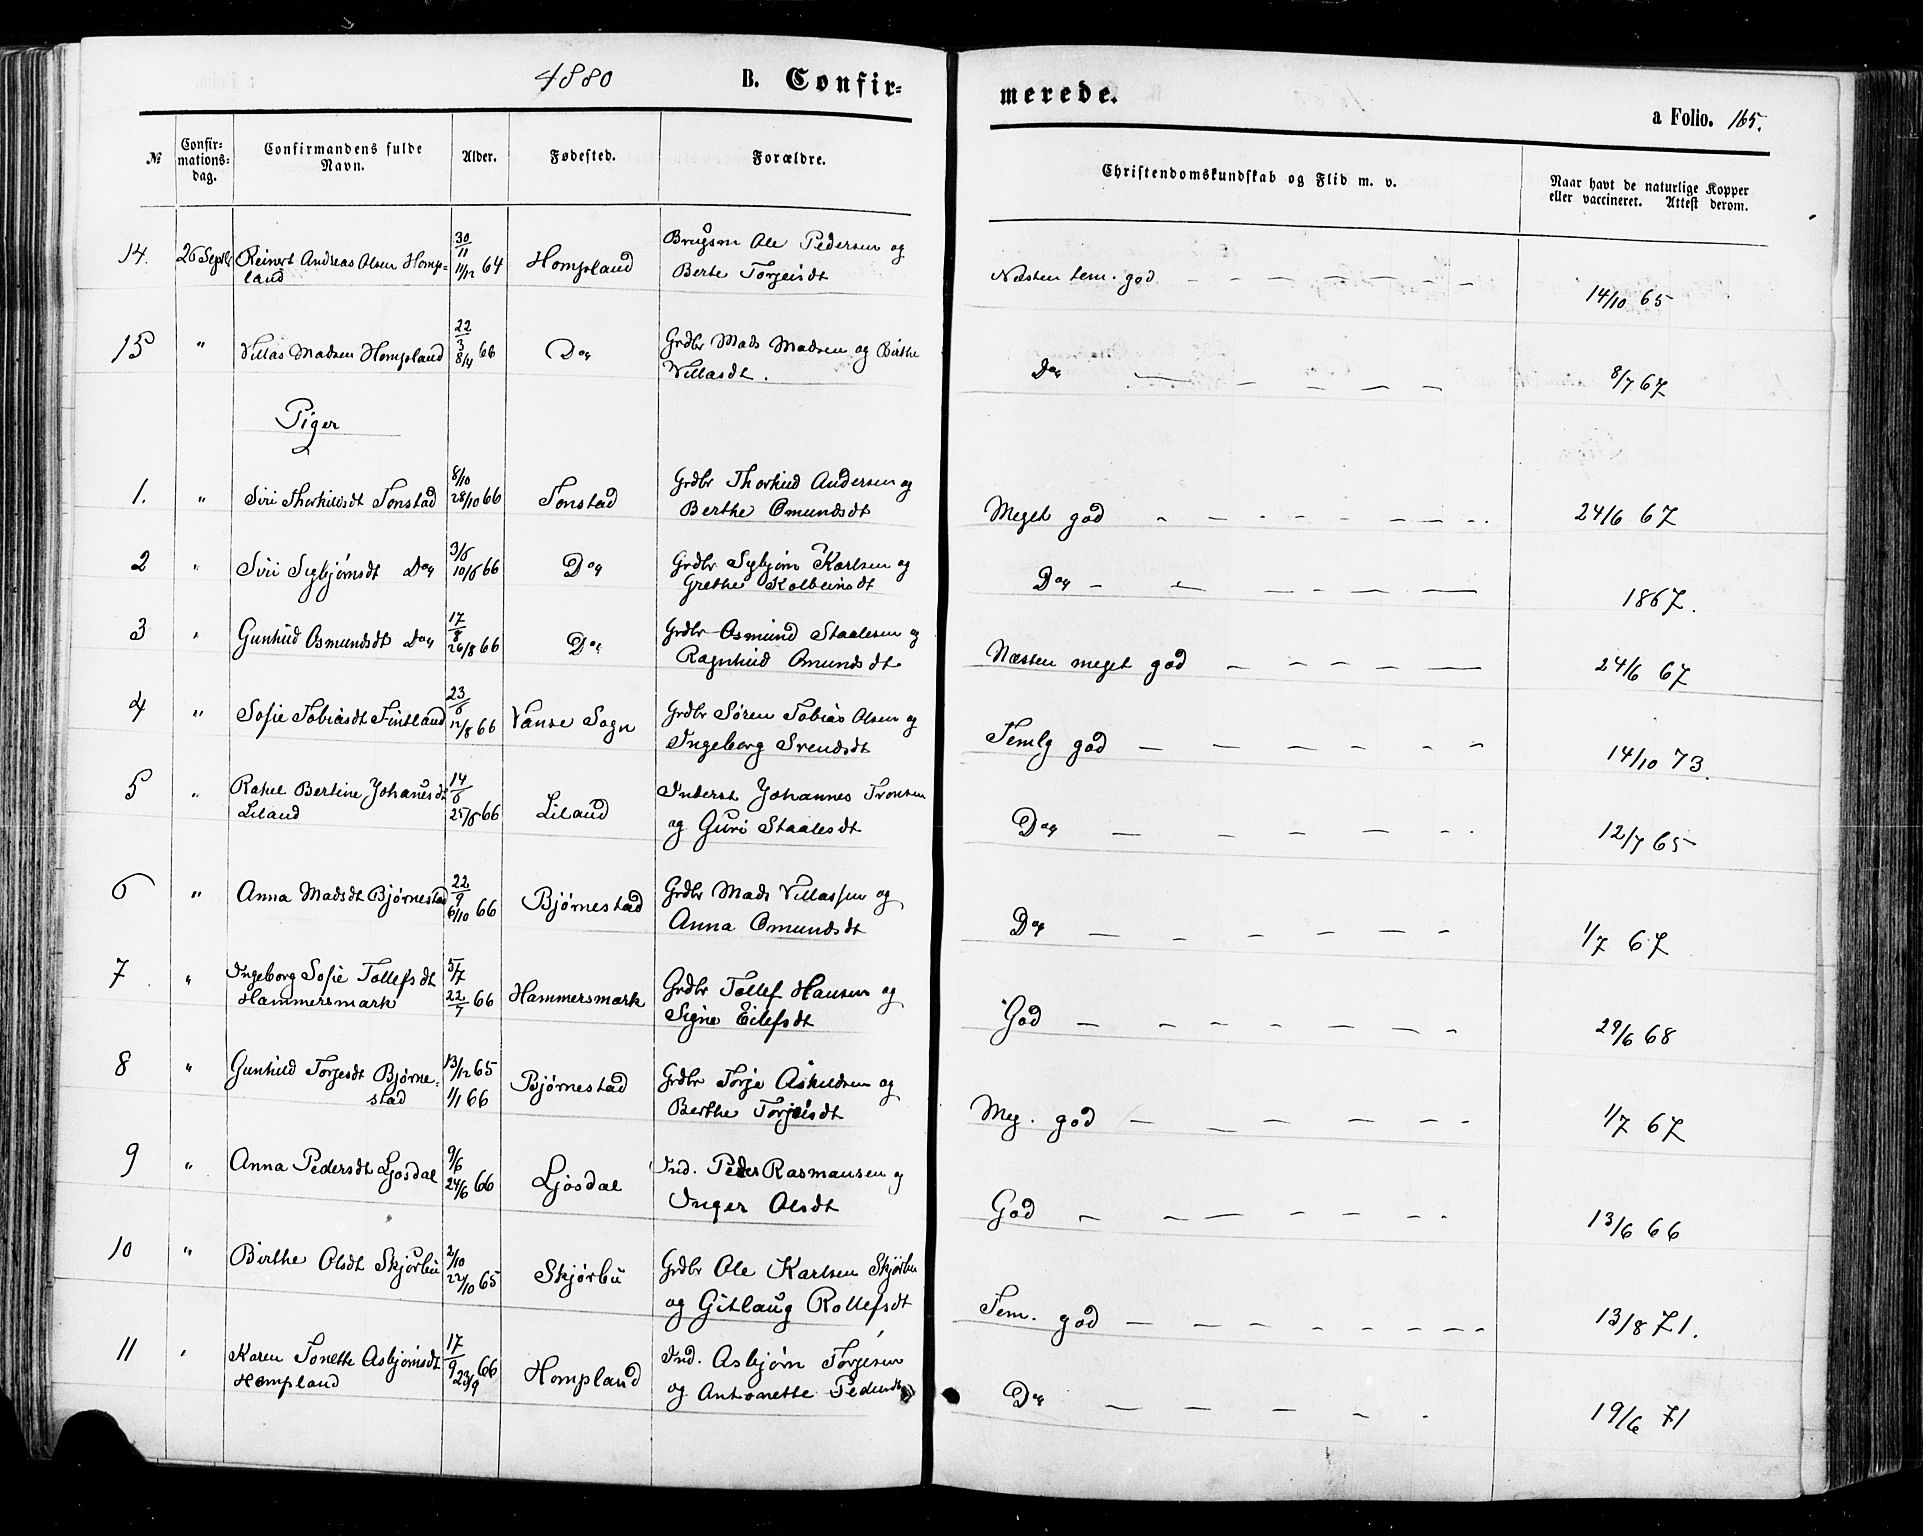 1880 B. Confir=
merede.
a Folio. 165.
№ Confir-mations-dag. Confirmandens fulde Navn. Alder. Fødested. Forældre.
Christendomskundskab og Flid m. v. Naar havt de naturlige Kopper eller vaccineret. Attest derom.
14. 26 Septbr Reinert Andreas Olsen Homp= 30/11 Hompland Brugsm Ole Pedersen og
land 11/12 64 Berte Torjeisdt Næsten tem. god 14/10 65
15 " Villas Madsen Hompland 22/3 Do Grdbr Mads Madsen og Birthe
8/4 66 Villasdt. Do 8/7 67
Piger
1. " Siri Thorkildsdt Tonstad 8/10 Tonstad Grdbr Thorkild Andersen og
28/10 66 Berthe Omundsdt Meget god 24/6 67
2 " Siri Sigbjørnsdt Do 3/6 Do Grdbr Sigbjørn Karlsen og
10/6 66 Grethe Kolbeinsdt Do 1867.
3 " Gunhild Osmundsdt Do 17/8 Do Grdbr Osmund Staalesen og
26/8 66 Ragnhild Omundsdt Næsten meget god 24/6 67
4 " Sofie Tobiasdt Fintland 23/6 Vanse Sogn Grdbr Søren Tobias Olsen og
12/8 66 Ingeborg Svendsdt Temlg god 14/10 73.
5 " Rakel Bertine Johanesdt 14/6 Liland Inderst Johannes Tronsen
Liland 25/6 66 og Guri Staalesdt Do 12/7 65
6 " Anna Madsdt Bjørnestad 22/9 Bjørnestad Grdbr Mads Villassen og
6/10 66 Anna Omundsdt Do 1/7 67
7 " Ingeborg Sofie Tollefsdt 5/7 Hammersmark Grdbr Tollef Hansen og
Hammersmark 22/7 66 Signe Eilefsdt God 29/6 68
8 " Gunhild Torjesdt Bjørne= 13/12 65 Bjørnestad Grdbr Torje Askildsen og
stad 1/1 66 Berthe Torjeisdt Meg. god 1/7 67
9 " Anna Pedersdt Ljosdal 9/6 Ljosdal Ind. Peder Rasmussen og
24/6 66 Inger Olsdt God 13/6 66
10 " Birthe Olsdt Skjørbu 2/10 Skjørbu Grdbr Ole Karlsen Skjørbu
22/10 65 og Gitlaug Rollefsdt Tem. god 13/8 71.
11 " Karen Tonette Asbjørnsdt 17/9 Hompland Ind. Asbjørn Torjesen
Hompland 23/9 66 og Antonette Pedersdt Do 19/6 71